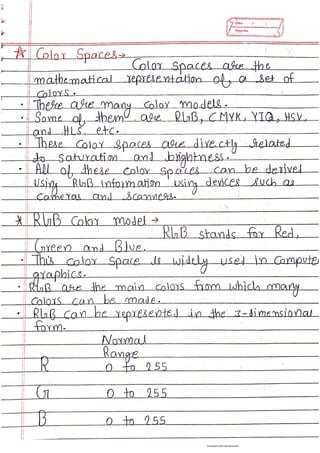 Color Spaces →
Color Spaces are the
mathematical representation of a set of
colors.
• There are many color models.
• Some of them are RGB, CMYK, YIQ, HSV,
and HLS. etc.
• These Color spaces are directly related
to saturation and brightness.
• All of these color spaces can be derived
Using RGB information using devices such as
cameras and scanners.
* RGB Color model →
RGB stands for Red,
Green and Blue.
• This color Space is widely used in Compute
graphics.
• RGB are the main colors from which many
colors can be made.
• RGB can be represented in the 3-dimensional
form.
Normal
Range
R 0 to 255
G 0 to 255
B 0 to 255